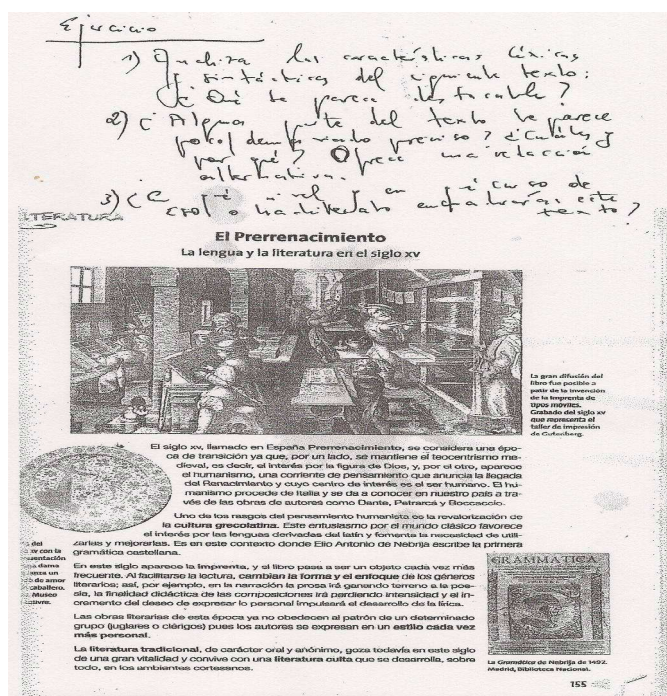 Ejercicio
1) Analiza las características léxicas
y sintácticas del siguiente texto:
¿Qué te parece destacable?
2) ¿Alguna parte del texto te parece
poco/demasiado preciso? ¿Cuáles y
por qué? Ofrece una redacción
alternativa.
3) ¿En qué nivel y en qué curso de
ESO o bachillerato encuadrarías este
texto?
LITERATURA
El Prerrenacimiento
La lengua y la literatura en el siglo XV
La gran difusión del
libro fue posible a
partir de la invención
de la imprenta de
tipos móviles.
Grabado del siglo XV
que representa el
taller de impresión
de Gutenberg.
El siglo XV, llamado en España Prerrenacimiento, se considera una épo-
ca de transición ya que, por un lado, se mantiene el teocentrismo me-
dieval, es decir, el interés por la figura de Dios, y, por el otro, aparece
el humanismo, una corriente de pensamiento que anuncia la llegada
del Renacimiento y cuyo centro de interés es el ser humano. El hu-
manismo procede de Italia y se da a conocer en nuestro país a tra-
vés de las obras de autores como Dante, Petrarca y Boccaccio.
Uno de los rasgos del pensamiento humanista es la revalorización de
la cultura grecolatina. Este entusiasmo por el mundo clásico favorece
el interés por las lenguas derivadas del latín y fomenta la necesidad de utili-
zarlas y mejorarlas. Es en este contexto donde Elio Antonio de Nebrija escribe la primera
gramática castellana.
En este siglo aparece la imprenta, y el libro pasa a ser un objeto cada vez más
frecuente. Al facilitarse la lectura, cambian la forma y el enfoque de los géneros
literarios; así, por ejemplo, en la narración la prosa irá ganando terreno a la poe-
sía, la finalidad didáctica de las composiciones irá perdiendo intensidad y el in-
cremento del deseo de expresar lo personal impulsará el desarrollo de la lírica.
Las obras literarias de esta época ya no obedecen al patrón de un determinado
grupo (juglares o clérigos) pues los autores se expresan en un estilo cada vez
más personal.
La literatura tradicional, de carácter oral y anónimo, goza todavía en este siglo
de una gran vitalidad y convive con una literatura culta que se desarrolla, sobre
todo, en los ambientes cortesanos.
del
XV con la
dama
de amor
caballero.
Museo
GRAMMATICA
La Gramática de Nebrija de 1492.
Madrid, Biblioteca Nacional.
155